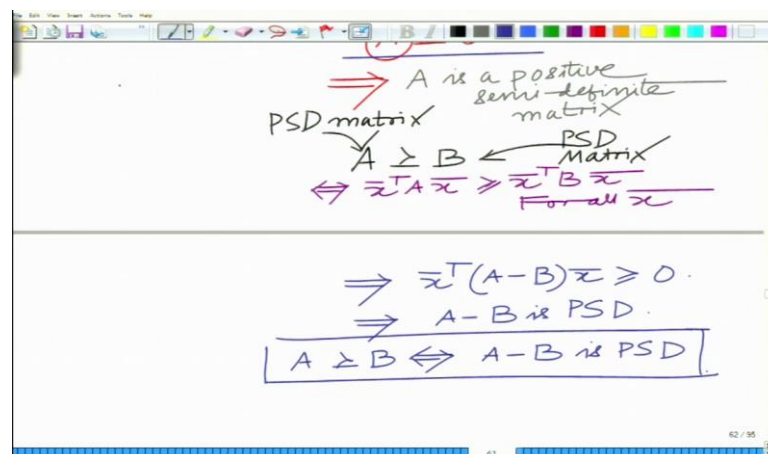 File Edit View Insert Actions Tools Help
⇒ A is a positive
semi-definite
matrix
PSD matrix
PSD
Matrix
A ≥ B ←
⇔ x̄ᵀA x̄ ≥ x̄ᵀB x̄
For all x̄
⇒ x̄ᵀ(A-B)x̄ ≥ 0.
⇒ A-B is PSD.
A ≥ B ⇔ A-B is PSD
62 / 95